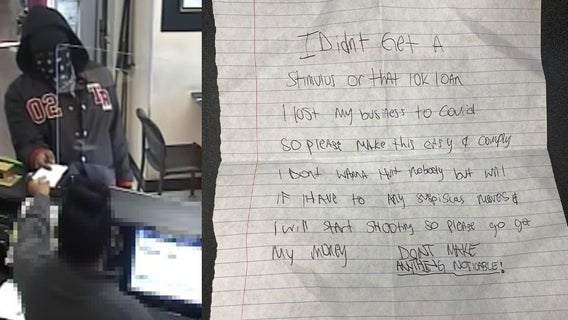 02 TR
I Didnt Get A
Stimulus or that 10K loan
I lost my business to Covid
So please make this easy & comply
I Dont wanna Hurt nobody but will
If I Have to any suspisous moves &
I will start shooting so please go get
My money DONT MAKE
ANYTHING NOTICABLE!